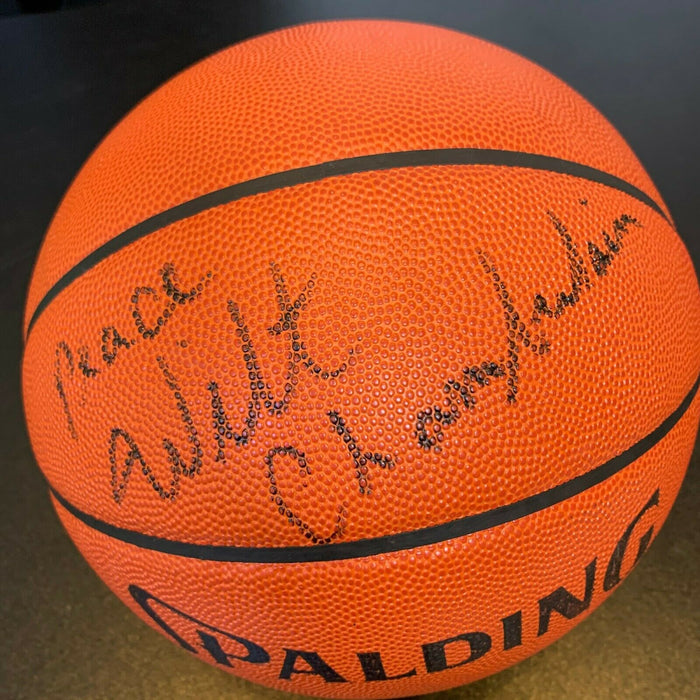 Peace
Wilt
Chamberlain
SPALDING